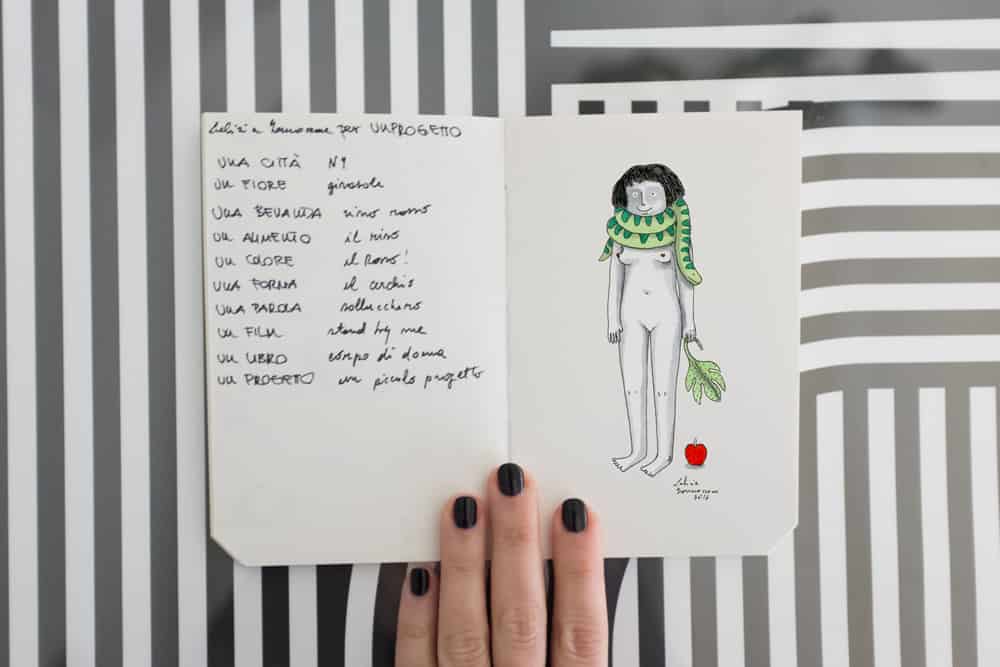 per UNPROGETTO
UNA CITTÀ NY
UN FIORE girasole
UNA BEVANDA vino rosso
UN ALIMENTO il riso
UN COLORE il Rosso!
UNA FORMA il cerchio
UNA PAROLA sollucchero
UN FILM stand by me
UN LIBRO corpo di donna
UN PROGETTO un piccolo progetto